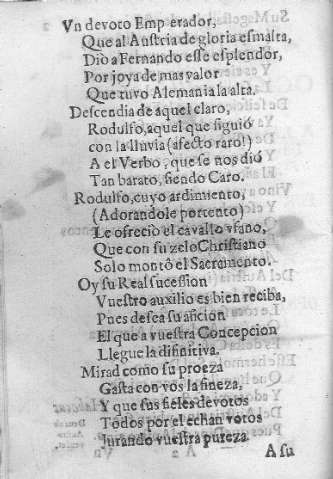 Vn devoto Emperador,
Que al Austria de gloria esmalta,
Diò a Fernando esse esplendor,
Por joya de mas valor
Que tuvo Alemania la alta.
Descendia de aquel claro,
Rodulfo, aquel que siguiò
con la lluvia (afecto raro!)
A el Verbo, que se nos diò
Tan barato, siendo Caro.
Rodulfo, cuyo ardimiento,
(Adorandole portento)
Le ofreciò el cavallo vfano,
Que con su zelo Christiano
Solo montò el Sacramento.
Oy su Real sucession
Vuestro auxilio es bien reciba,
Pues desea su aficion
El que a vuestra Concepcion
Llegue la difinitiva.
Mirad como su proeza
Gasta con vos la fineza,
Y que sus fieles devotos
Todos por el echan votos
Jurando vuestra pureza.
A su